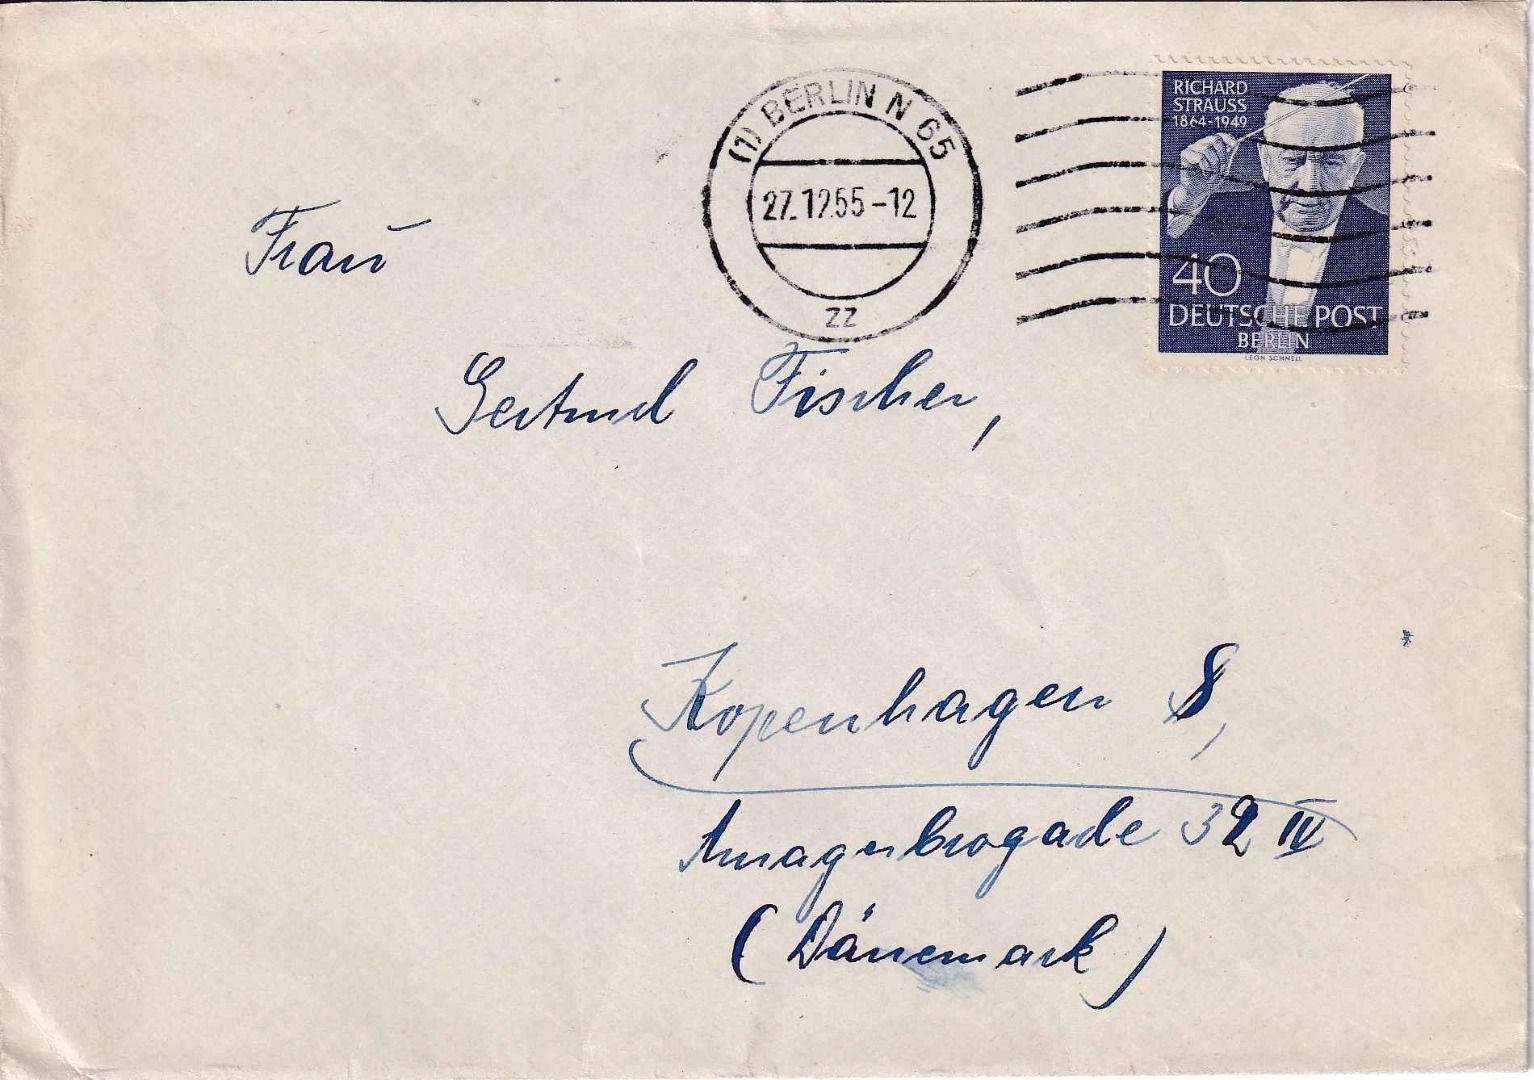 (1) BERLIN N 65
27.12.55-12
zz
RICHARD
STRAUSS
1864-1949
40
DEUTSCHE POST
BERLIN
LEON SCHNELL
Frau
Gertrud Fischer,
Kopenhagen S,
Amagerbrogade 32 IV
(Dänemark)